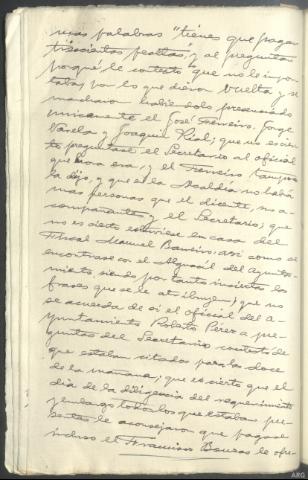 mas palabras "tienes que pagar
trescientas pesetas", y al preguntar
porqué le contestó que no le impor-
taba, por lo que dieron vuelta y se
marcharon habiendolo presenciado
unicamente el José Ferreiro, Jorge
Varela y Joaquin Rial; que no es cier-
to preguntase el Secretario al oficial
que hora era, y el Francisco tampoco
lo dijo, y que en la Alcaldia no había
mas personas que el dicente, sus a-
compañantes y el Secretario; que
no es cierto estuviese en casa del
Fiscal Manuel Barreiro, asi como se
encontrase con el Alguacil del Ayunta-
miento, siendo por tanto inciertas las
frases que se le atribuyen; que no
se acuerda de si el oficial del A-
yuntamiento Roberto Pérez a pre-
guntas del Secretario contestó de
que estaban citados para las doce
de la mañana; que es cierto que el
dia de la diligencia del requerimiento
y embargo todos los que estaban pre-
sentes le aconsejaron que pagase
incluso el Francisco Bouzas le ofre-
ARG